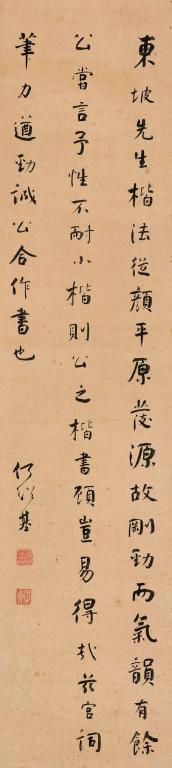 東坡先生楷法從顏平原發源故剛勁而氣韻有餘
公嘗言予性不耐小楷則公之楷書顧豈易得哉茲宮詞
筆力遒勁誠公合作書也
何紹基